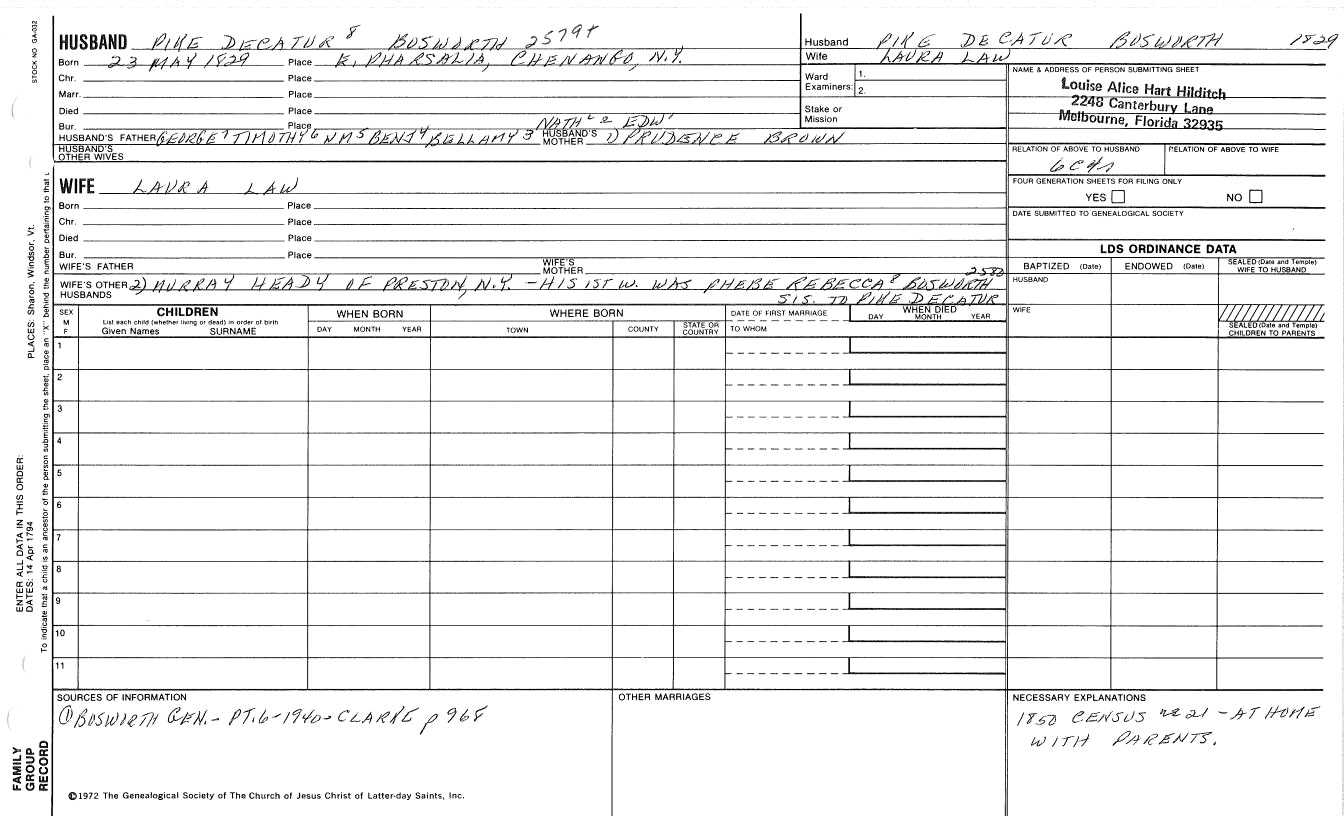 STOCK NO GA-032
HUSBAND PIKE DECATUR⁸ BOSWORTH 2579+
Born 23 MAY 1829 Place E. PHARSALIA, CHENANGO, N.Y.
Chr. Place
Marr. Place
Died Place
Bur. Place
NATH² & EDW¹
HUSBAND'S FATHER GEORGE⁷ TIMOTHY⁶ NM⁵ BENJ⁴ BELLAMY³ HUSBAND'S MOTHER 1) PRUDENCE BROWN
HUSBAND'S OTHER WIVES
Husband PIKE DECATUR BOSWORTH 1829
Wife LAURA LAW
Ward Examiners: 1.
2.
Stake or Mission
NAME & ADDRESS OF PERSON SUBMITTING SHEET
Louise Alice Hart Hilditch
2248 Canterbury Lane
Melbourne, Florida 32935
RELATION OF ABOVE TO HUSBAND RELATION OF ABOVE TO WIFE
6C4r
FOUR GENERATION SHEETS FOR FILING ONLY
YES NO
DATE SUBMITTED TO GENEALOGICAL SOCIETY
WIFE LAURA LAW
Born Place
Chr. Place
Died Place
Bur. Place
WIFE'S FATHER WIFE'S MOTHER
2580
WIFE'S OTHER HUSBANDS 2) MURRAY HEADY OF PRESTON, N.Y. - HIS 1ST W. WAS PHEBE REBECCA⁸ BOSWORTH
SIS. TO PIKE DECATUR
LDS ORDINANCE DATA
BAPTIZED (Date) ENDOWED (Date) SEALED (Date and Temple) WIFE TO HUSBAND
HUSBAND
WIFE
SEALED (Date and Temple) CHILDREN TO PARENTS
SEX M F
CHILDREN
List each child (whether living or dead) in order of birth
Given Names SURNAME
WHEN BORN
DAY MONTH YEAR
WHERE BORN
TOWN COUNTY STATE OR COUNTRY
DATE OF FIRST MARRIAGE
TO WHOM
WHEN DIED
DAY MONTH YEAR
1
2
3
4
5
6
7
8
9
10
11
SOURCES OF INFORMATION
① BOSWORTH GEN. - PT. 6 - 1940 - CLARKE p 968
OTHER MARRIAGES
NECESSARY EXPLANATIONS
1850 CENSUS ae 21 - AT HOME
WITH PARENTS.
©1972 The Genealogical Society of The Church of Jesus Christ of Latter-day Saints, Inc.
FAMILY GROUP RECORD
ENTER ALL DATA IN THIS ORDER:
DATES: 14 Apr 1794
PLACES: Sharon, Windsor, Vt.
To indicate that a child is an ancestor of the person submitting the sheet, place an "X" behind the number pertaining to that